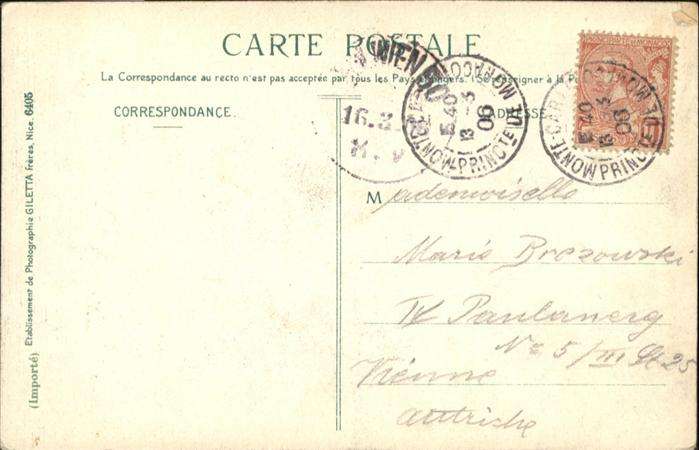 CARTE POSTALE
La Correspondance au recto n'est pas acceptée par tous les Pays Étrangers. (Se renseigner à la Po
CORRESPONDANCE.
ADRESSE
WIEN
16.3
MONTE-CARLO
PRINCTE DE MONACO
E 40
13 - 3
06
MONTE-CARLO
PRINCTE DE MONACO
E 40
13 - 3
06
Mademoiselle
Marie Brezowski
IV Paulanerg
No 5/III St 25
Vienne
Autriche
(Importé) Etablissement de Photographie GILETTA frères, Nice. 6405